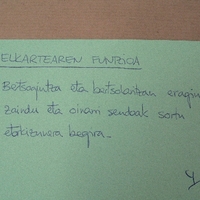 ELKARTEAREN FUNTZIOA
Bertsogintza eta bertsolaritzan eragin
zaindu eta oinarri sendoak sortu
etorkizunera begira.